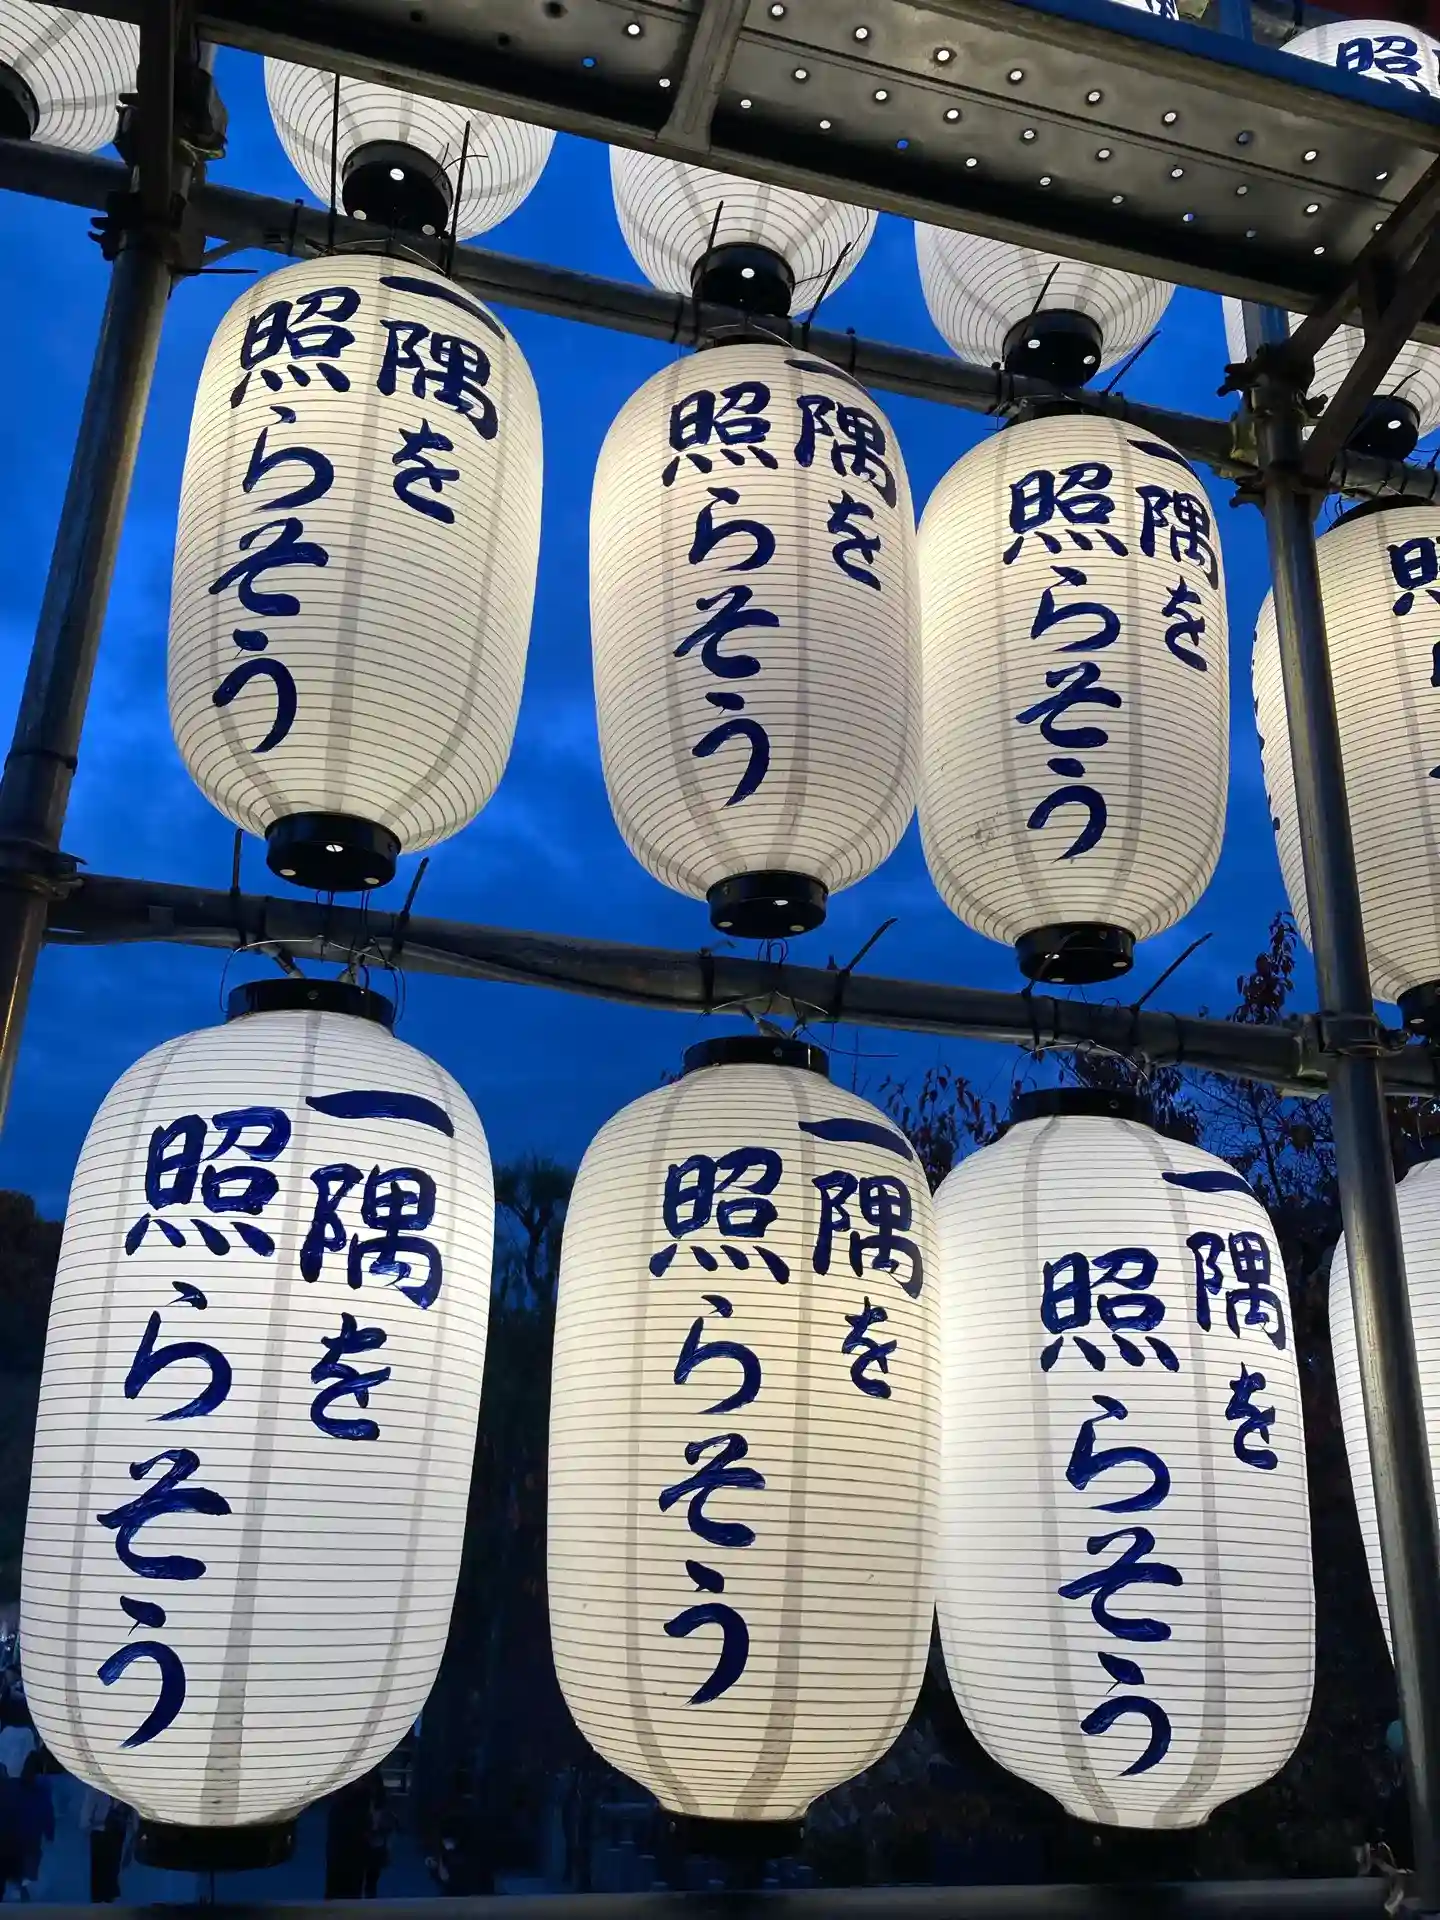 一隅を
照らそう
一隅を
照らそう
一隅を
照らそう
照
照
一隅を
照らそう
一隅を
照らそう
一隅を
照らそう